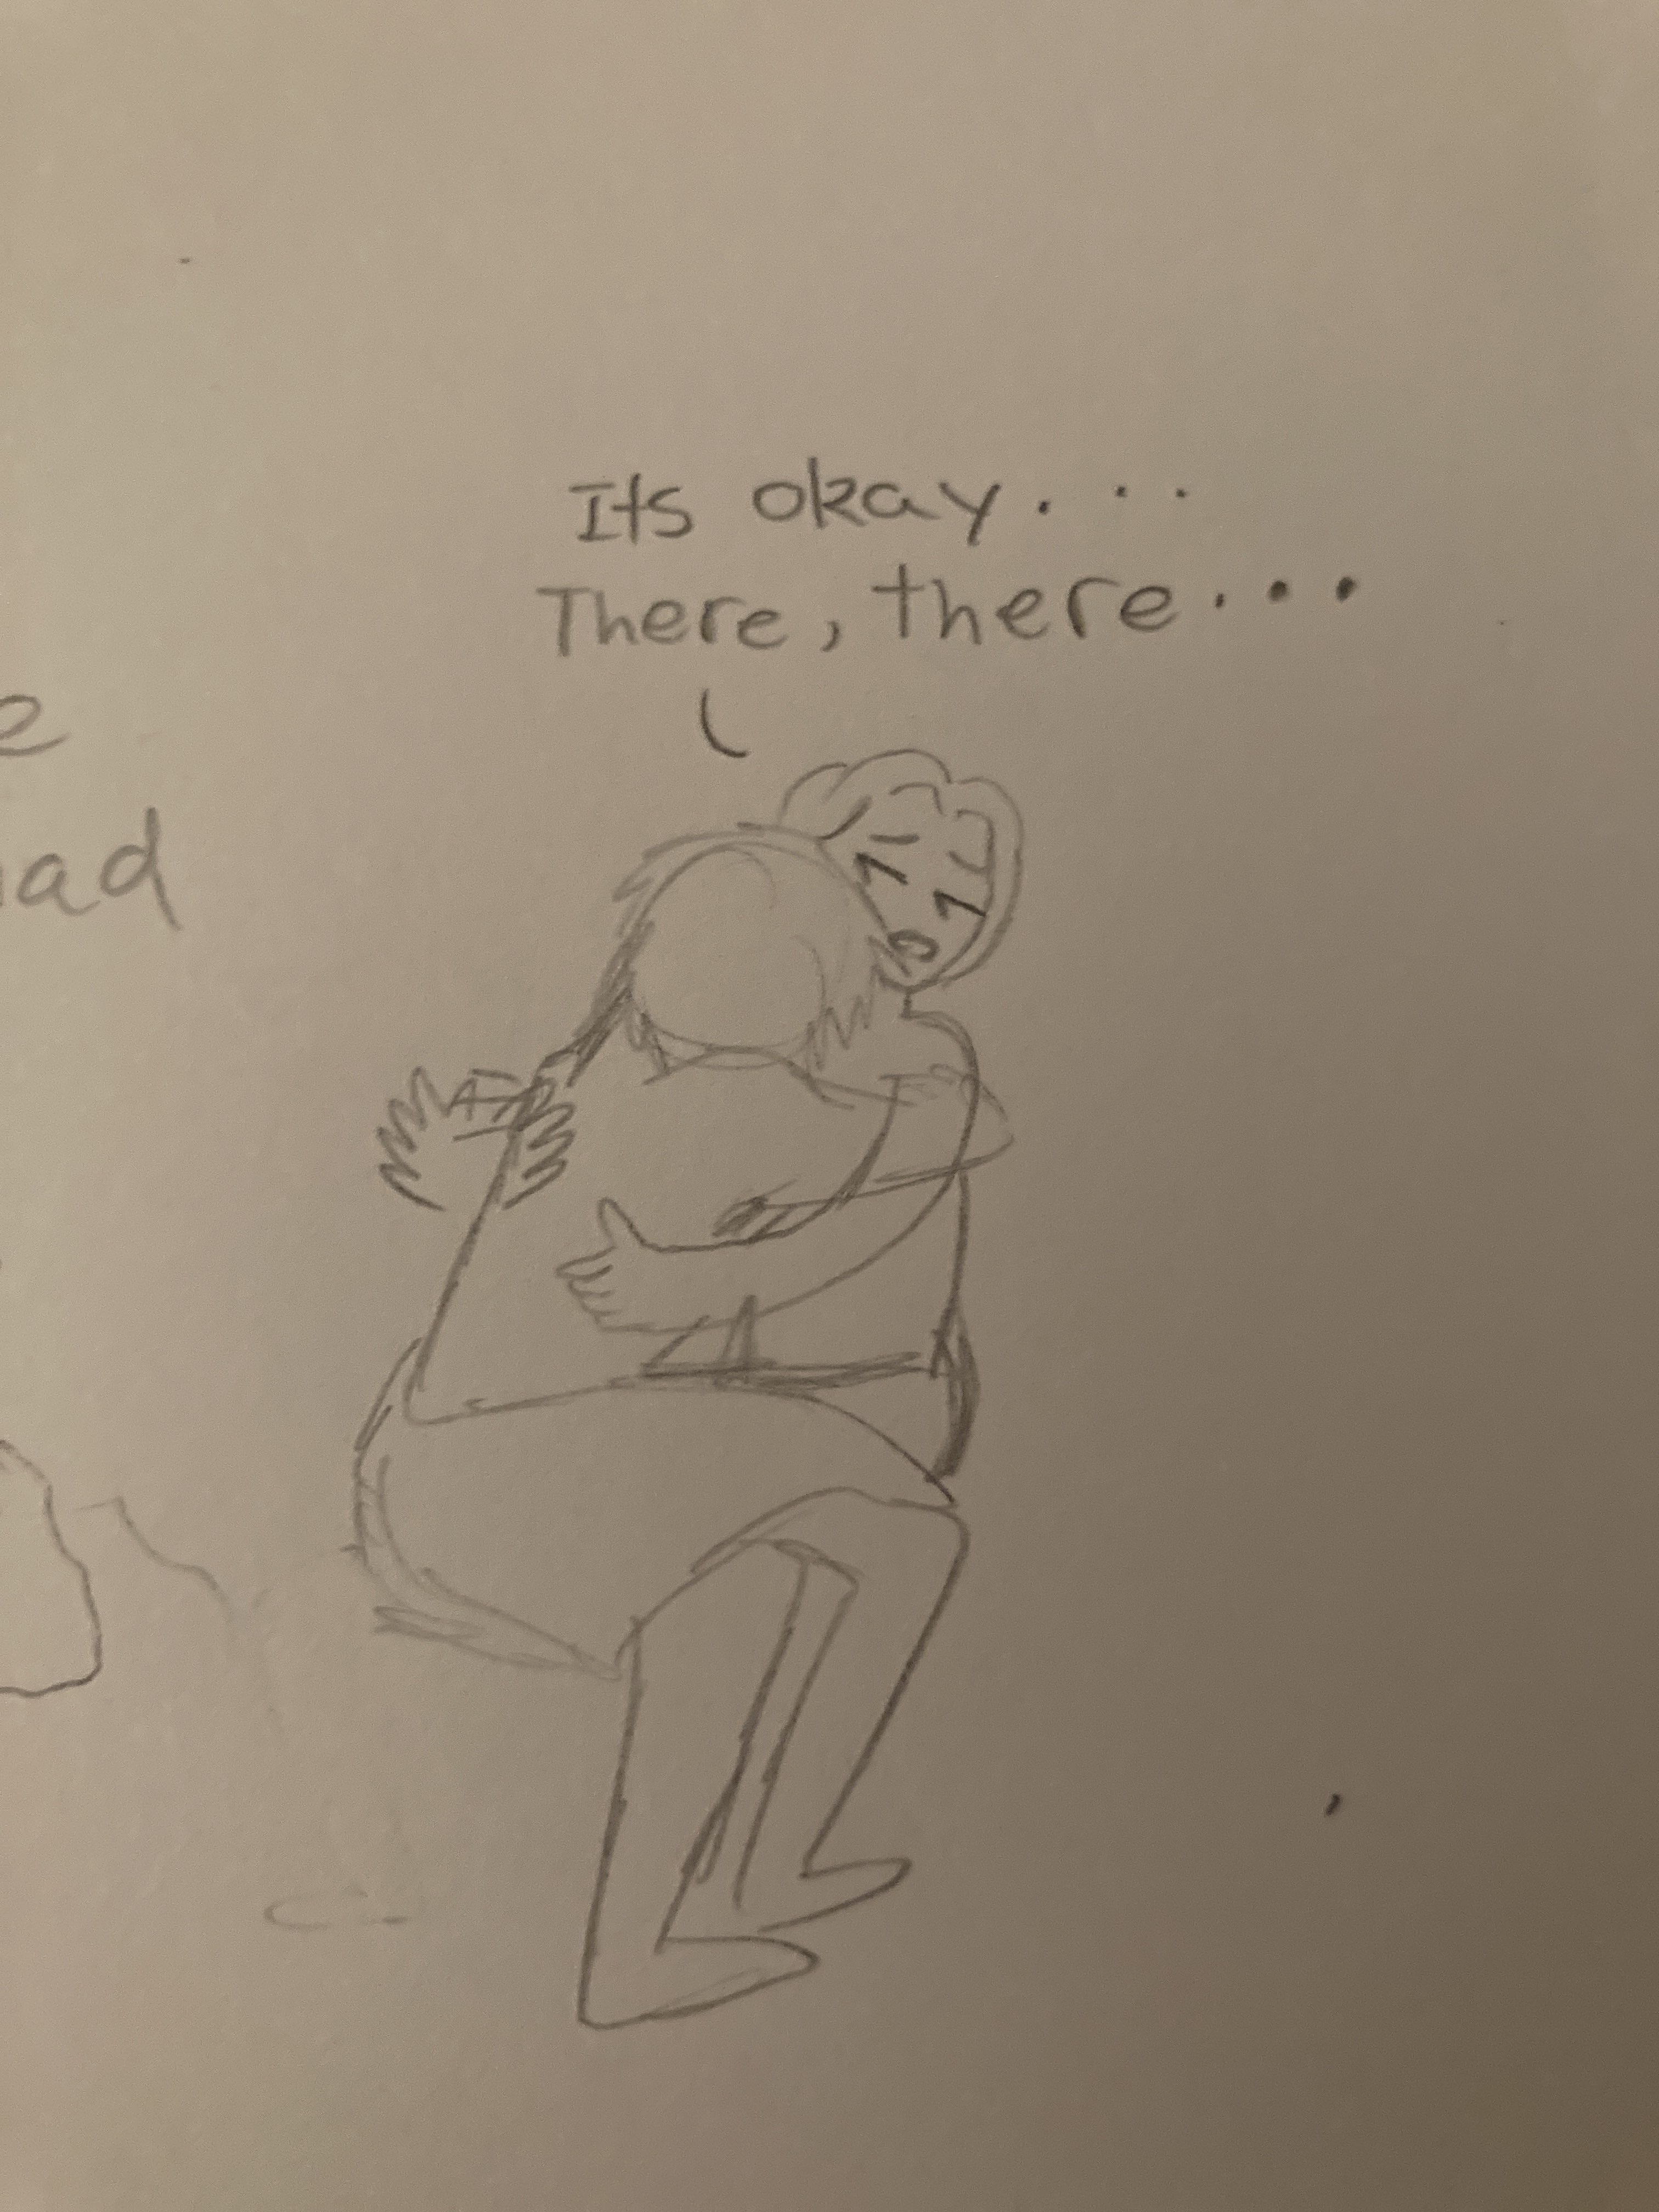 Its okay...
There, there...